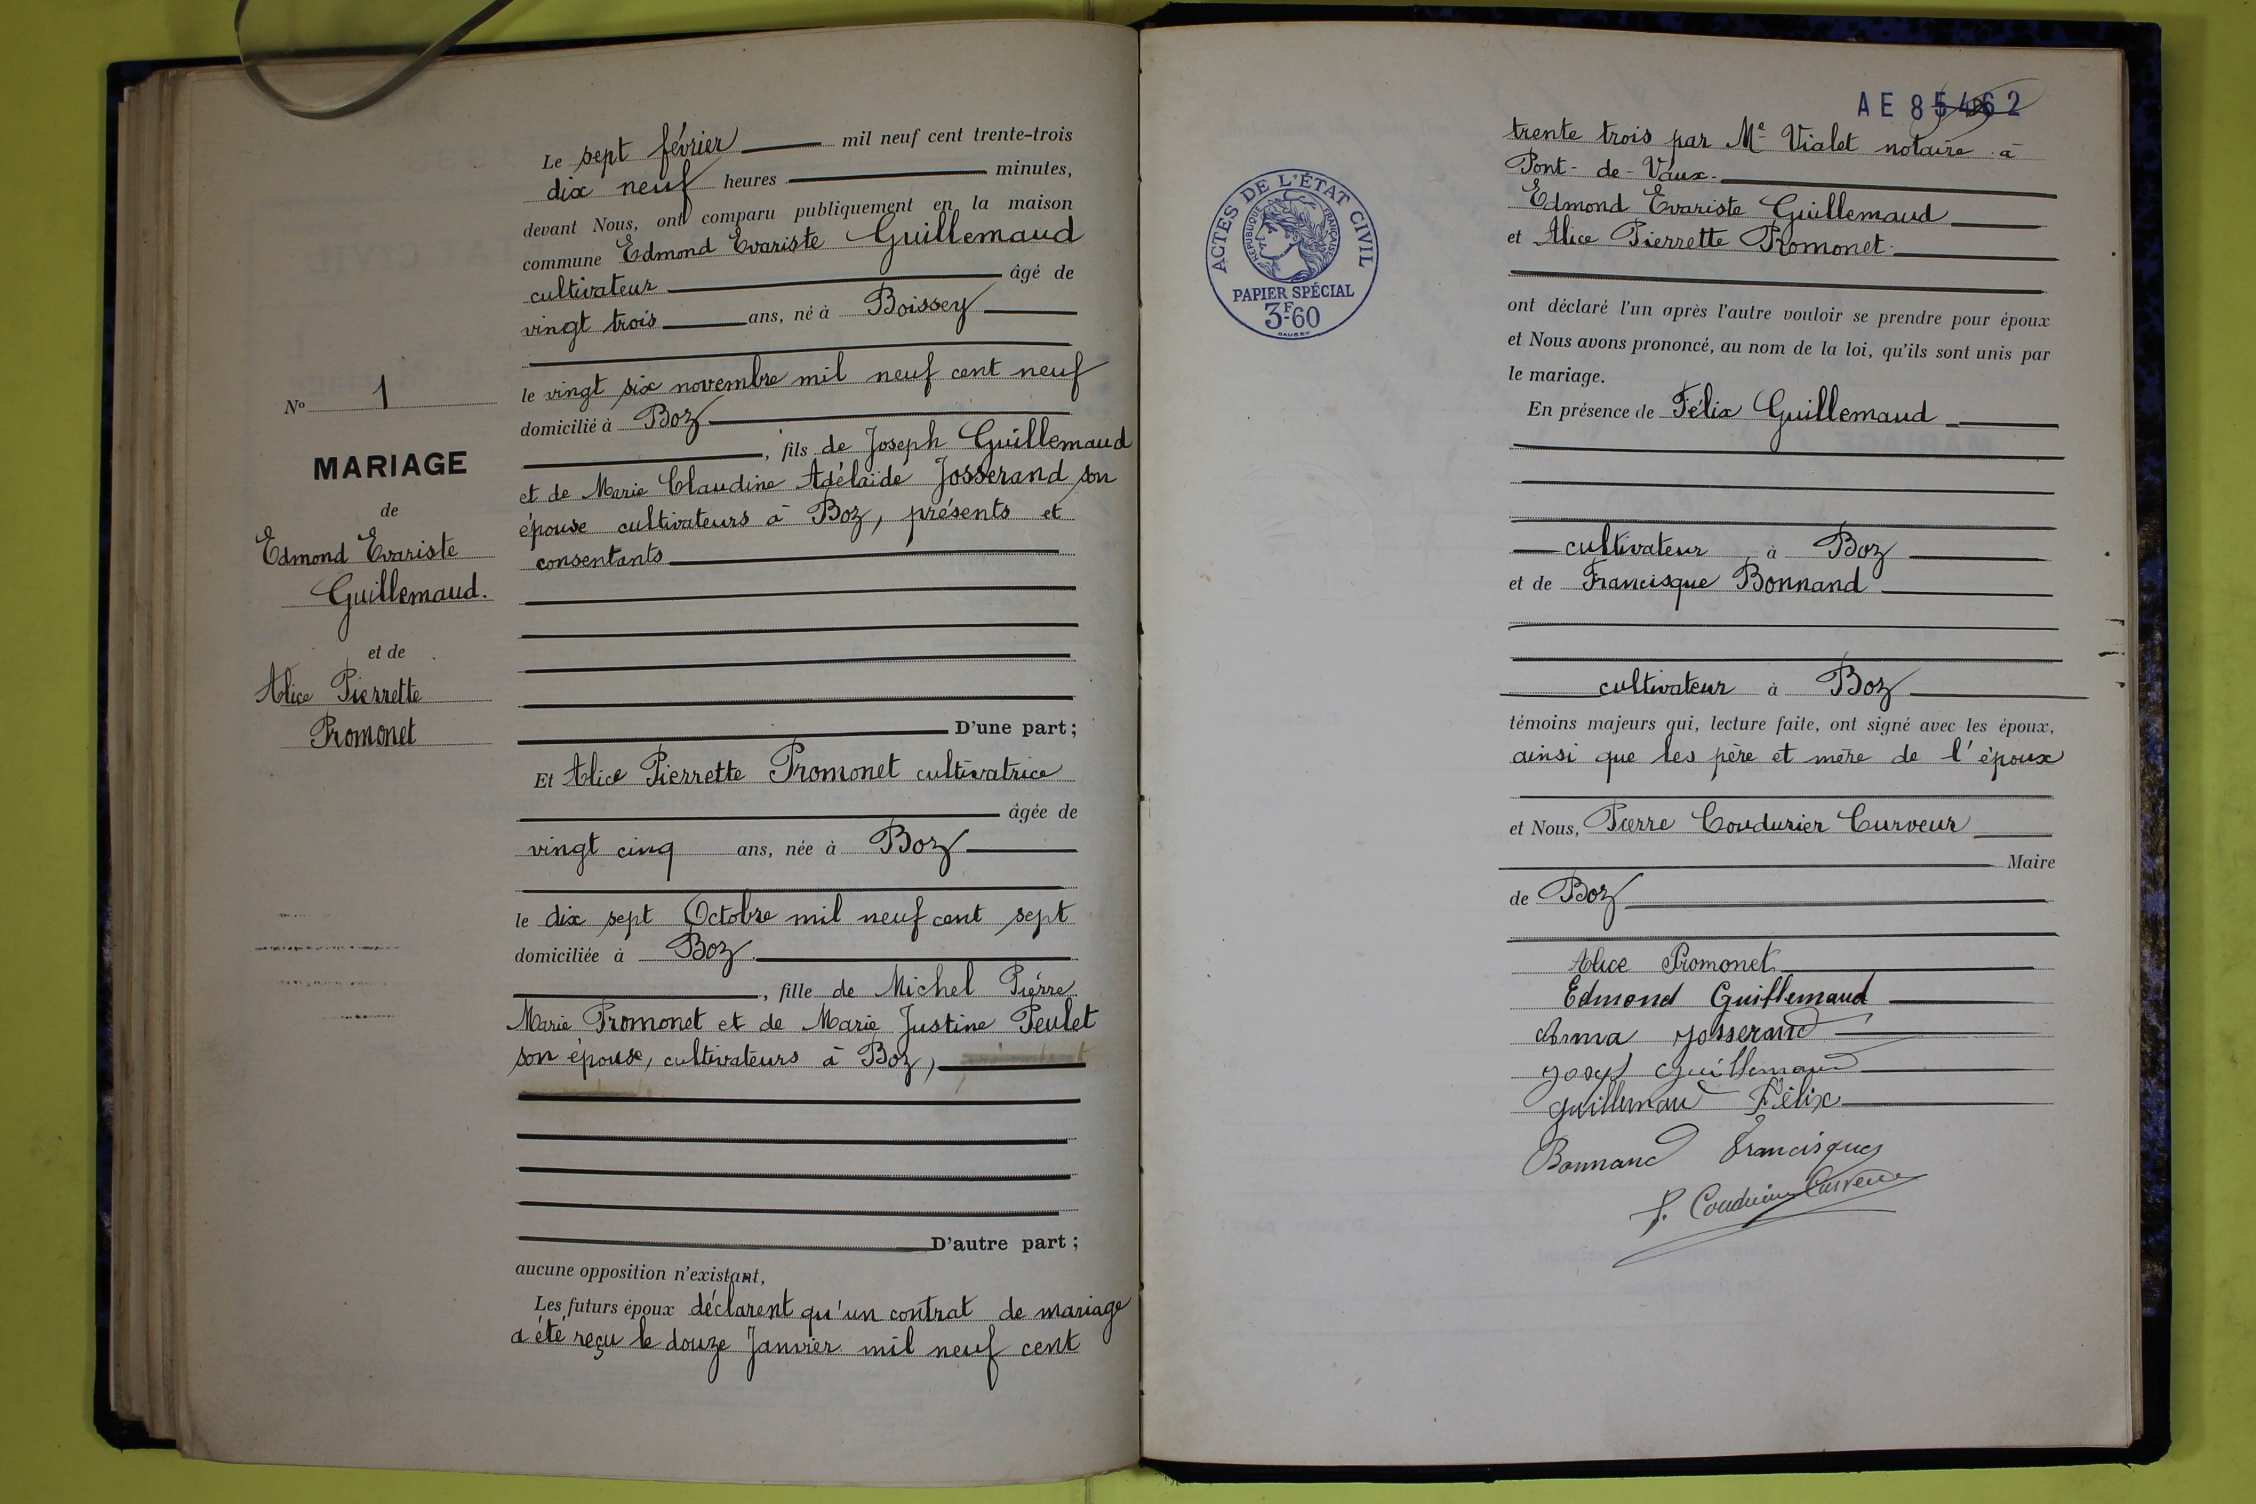 N° 1
MARIAGE
de
Edmond Evariste
Guillemaud.
et de
Alice Pierrette
Promonet
Le sept février mil neuf cent trente-trois
dix neuf heures minutes,
devant Nous, ont comparu publiquement en la maison
commune Edmond Evariste Guillemaud
cultivateur âgé de
vingt trois ans, né à Boissey
le vingt six novembre mil neuf cent neuf
domicilié à Boz
, fils de Joseph Guillemaud
et de Marie Claudine Adélaïde Josserand son
épouse cultivateurs à Boz, présents et
consentants
D'une part ;
Et Alice Pierrette Promonet cultivatrice
âgée de
vingt cinq ans, née à Boz
le dix sept Octobre mil neuf cent sept
domiciliée à Boz
, fille de Michel Pierre
Marie Promonet et de Marie Justine Peulet
son épouse, cultivateurs à Boz,
D'autre part ;
aucune opposition n'existant,
Les futurs époux déclarent qu'un contrat de mariage
a été reçu le douze Janvier mil neuf cent
AE 85462
ACTES DE L'ÉTAT CIVIL
RÉPUBLIQUE FRANÇAISE
PAPIER SPÉCIAL
3F.60
trente trois par Me Vialet notaire à
Pont-de-Vaux.
Edmond Evariste Guillemaud
et Alice Pierrette Promonet.
ont déclaré l'un après l'autre vouloir se prendre pour époux
et Nous avons prononcé, au nom de la loi, qu'ils sont unis par
le mariage.
En présence de Félix Guillemaud
cultivateur à Boz
et de Francisque Bonnand
cultivateur à Boz
témoins majeurs qui, lecture faite, ont signé avec les époux,
ainsi que les père et mère de l'époux
et Nous, Pierre Coudurier Curveur
Maire
de Boz
Alice Promonet
Edmond Guillemaud
Josserand
Joseph Guillemaud
Guillemaud Félix
Bonnand Francisque
P. Coudurier Curveur